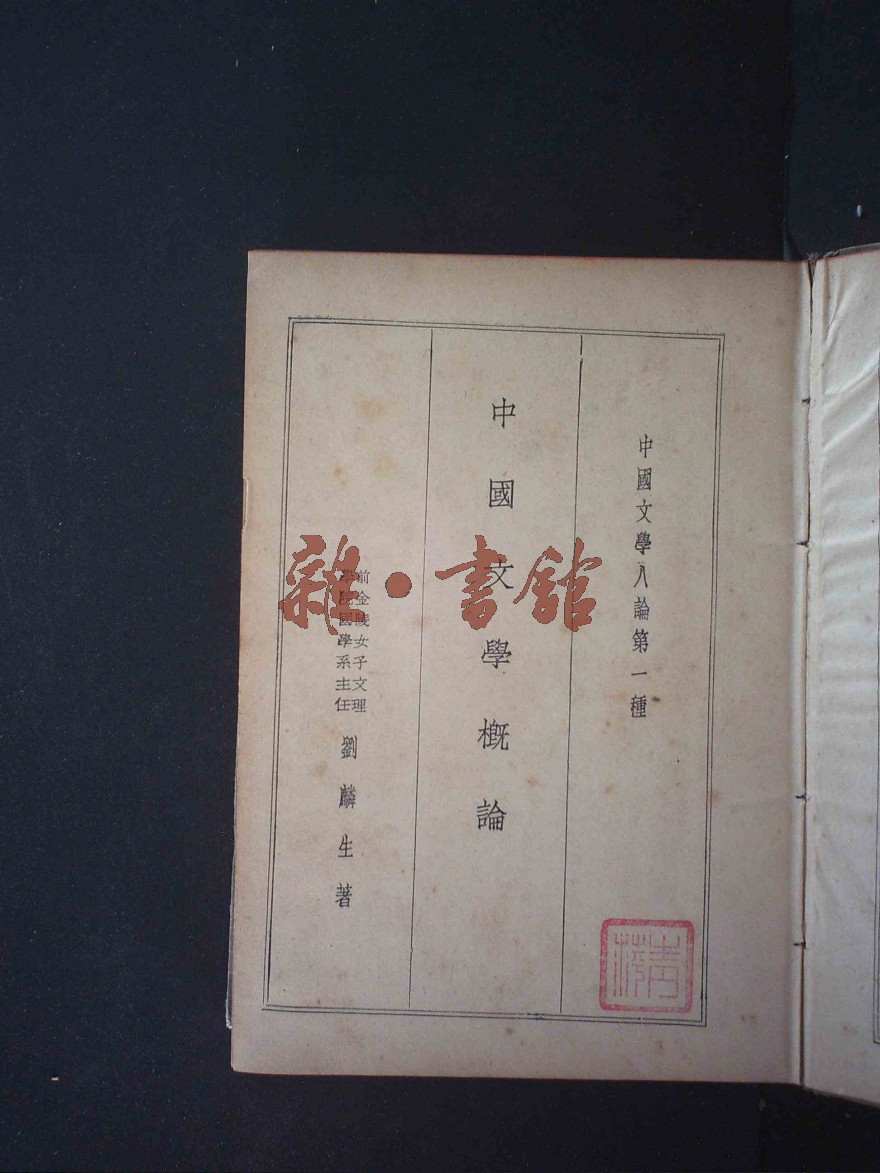 中國文學八論第一種
中國文學概論
前金陵女子文理
學院國學系主任
劉麟生著
雜·書館